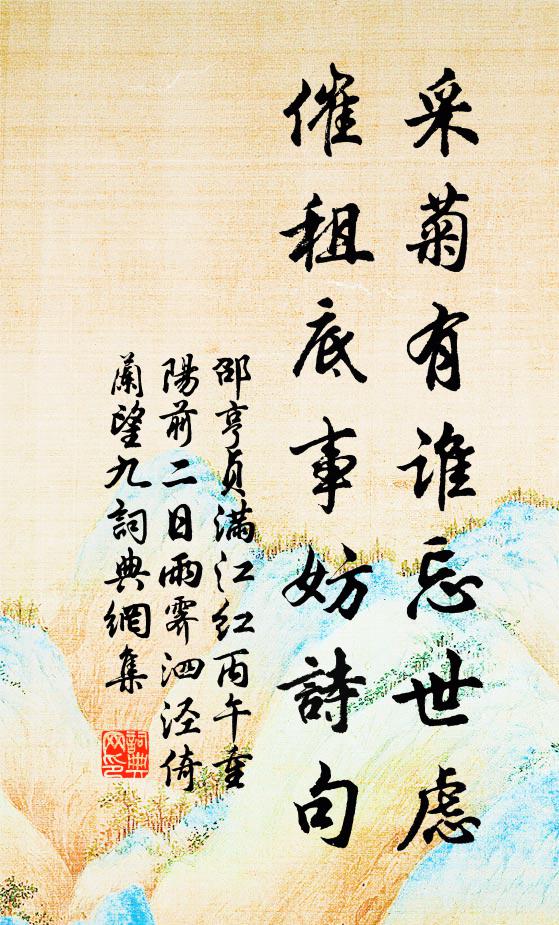 采菊有谁忘世虑
催租底事妨詩句
邵亨貞滿江红丙午重
陽前二日雨霽泗泾倚
蘭望九詞典網集
詞典
网印